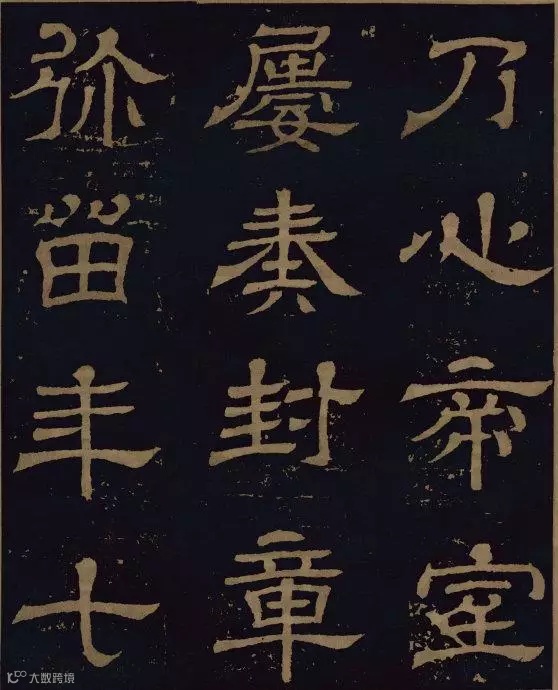 乃心帝室
屡奏封章
弥留年七
大数跨境